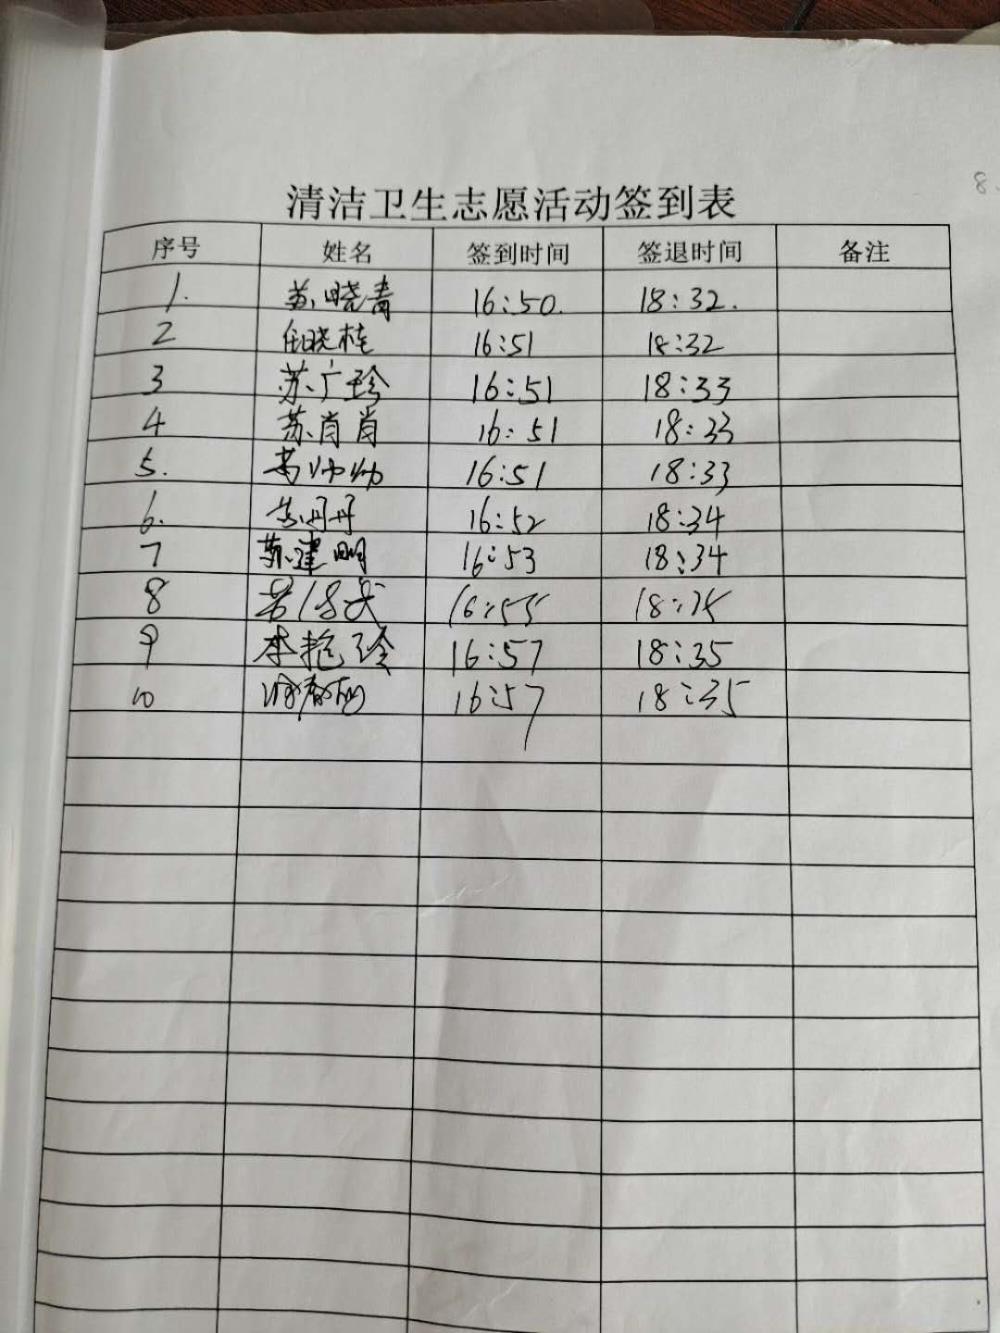 8
清洁卫生志愿活动签到表
序号 姓名 签到时间 签退时间 备注
1. 苏晓青 16:50. 18:32.
2 任晓桂 16:51 18:32
3 苏广珍 16:51 18:33
4 苏肖肖 16:51 18:33
5. 苏帅帅 16:51 18:33
6. 苏丹丹 16:52 18:34
7 苏建明 16:53 18:34
8 16:55
9 李艳玲 16:57 18:35
10 16:57 18:35